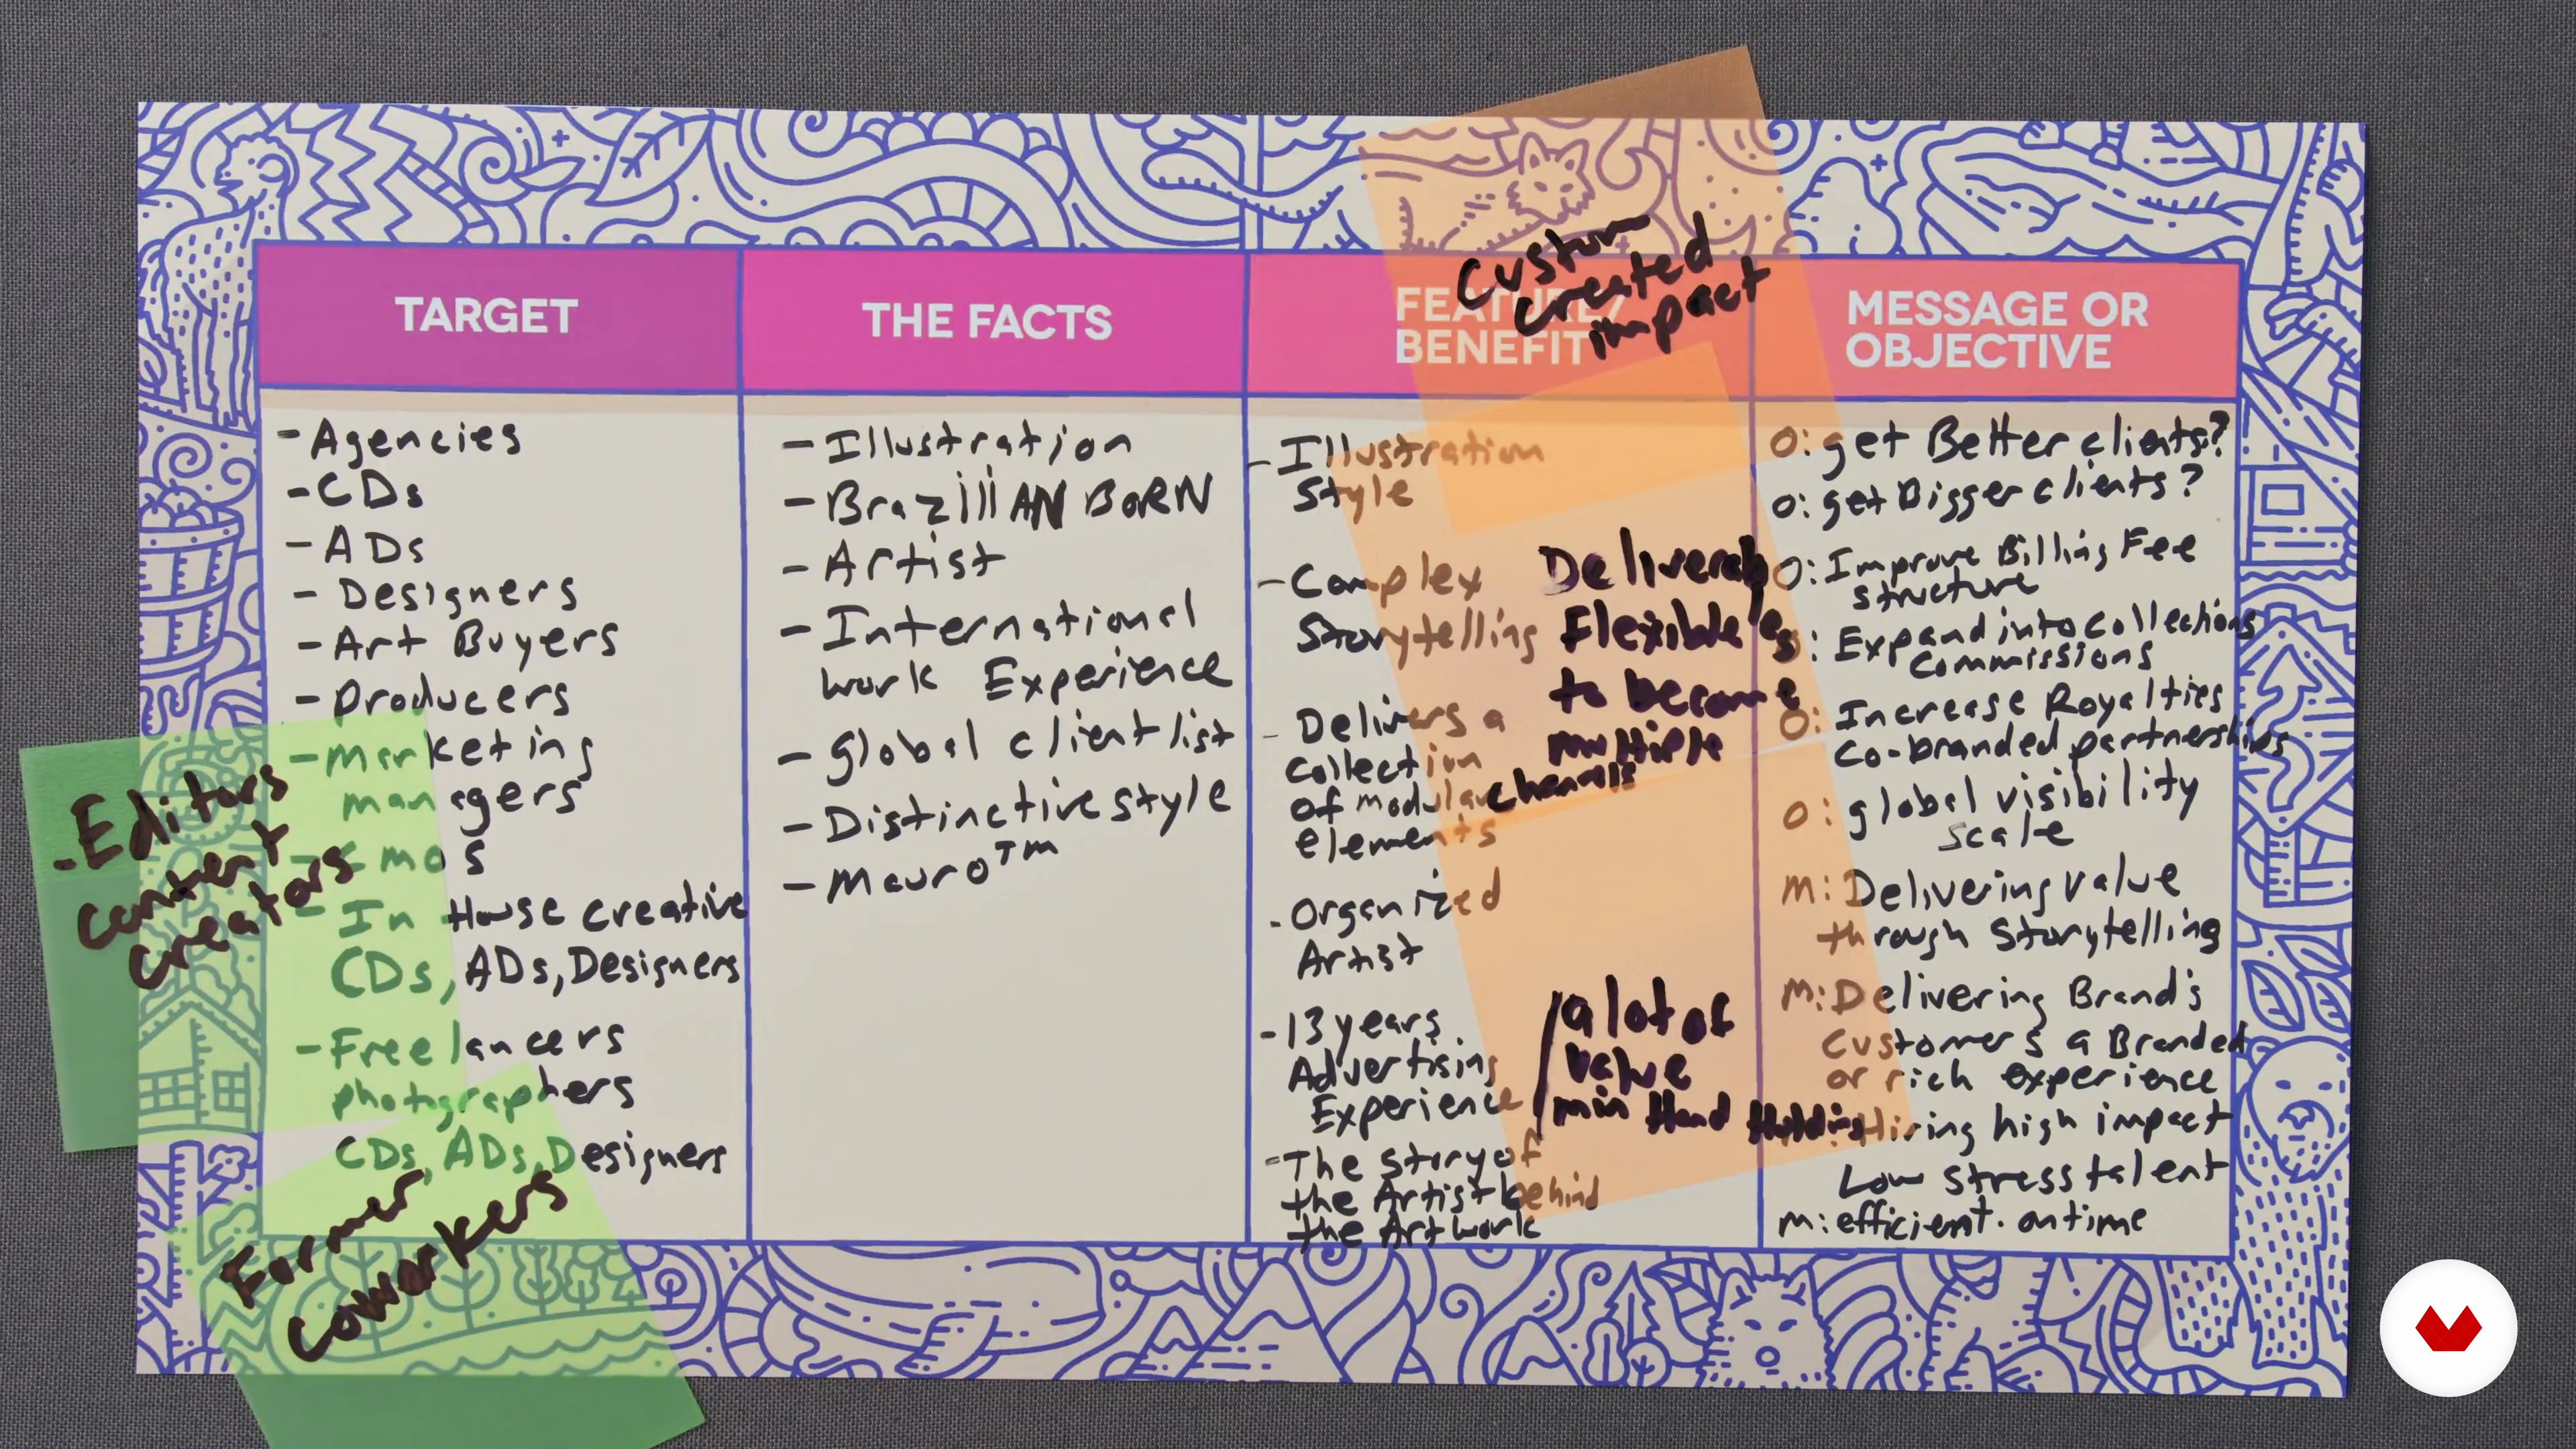 TARGET
- Agencies
- CDs
- ADs
- Designers
- Art Buyers
- Producers
- Marketing
managers
- CMOs
- In House creative
CDs, ADs, Designers
- Freelancers
photographers
CDs, ADs, Designers
- Editors
Content
Creators
Former
Coworkers
THE FACTS
- Illustration
- BrazillIAN BORN
- Artist
- International
work Experience
- global client list
- Distinctive style
- Mauro™
FEATURE/
BENEFIT
Custom
created
impact
- Illustration
Style
- Complex
Storytelling
- Delivers a
collection
of modular
elements
- Organized
Artist
- 13 years
Advertising
Experience
- The story of
the Artist behind
the Artwork
Deliverables
Flexible
to become
multiple
channels
/ a lot of
value
min Hand Holding
MESSAGE OR
OBJECTIVE
O: get Better clients?
O: get Bigger clients?
O: Improve Billing Fee
structure
O: Expand into collections
commissions
O: Increase Royalties
co-branded partnerships
O: global visibility
scale
M: Delivering value
through storytelling
M: Delivering Brand's
customers a Branded
or rich experience
Hiring high impact
Low stress talent
M: efficient. on time